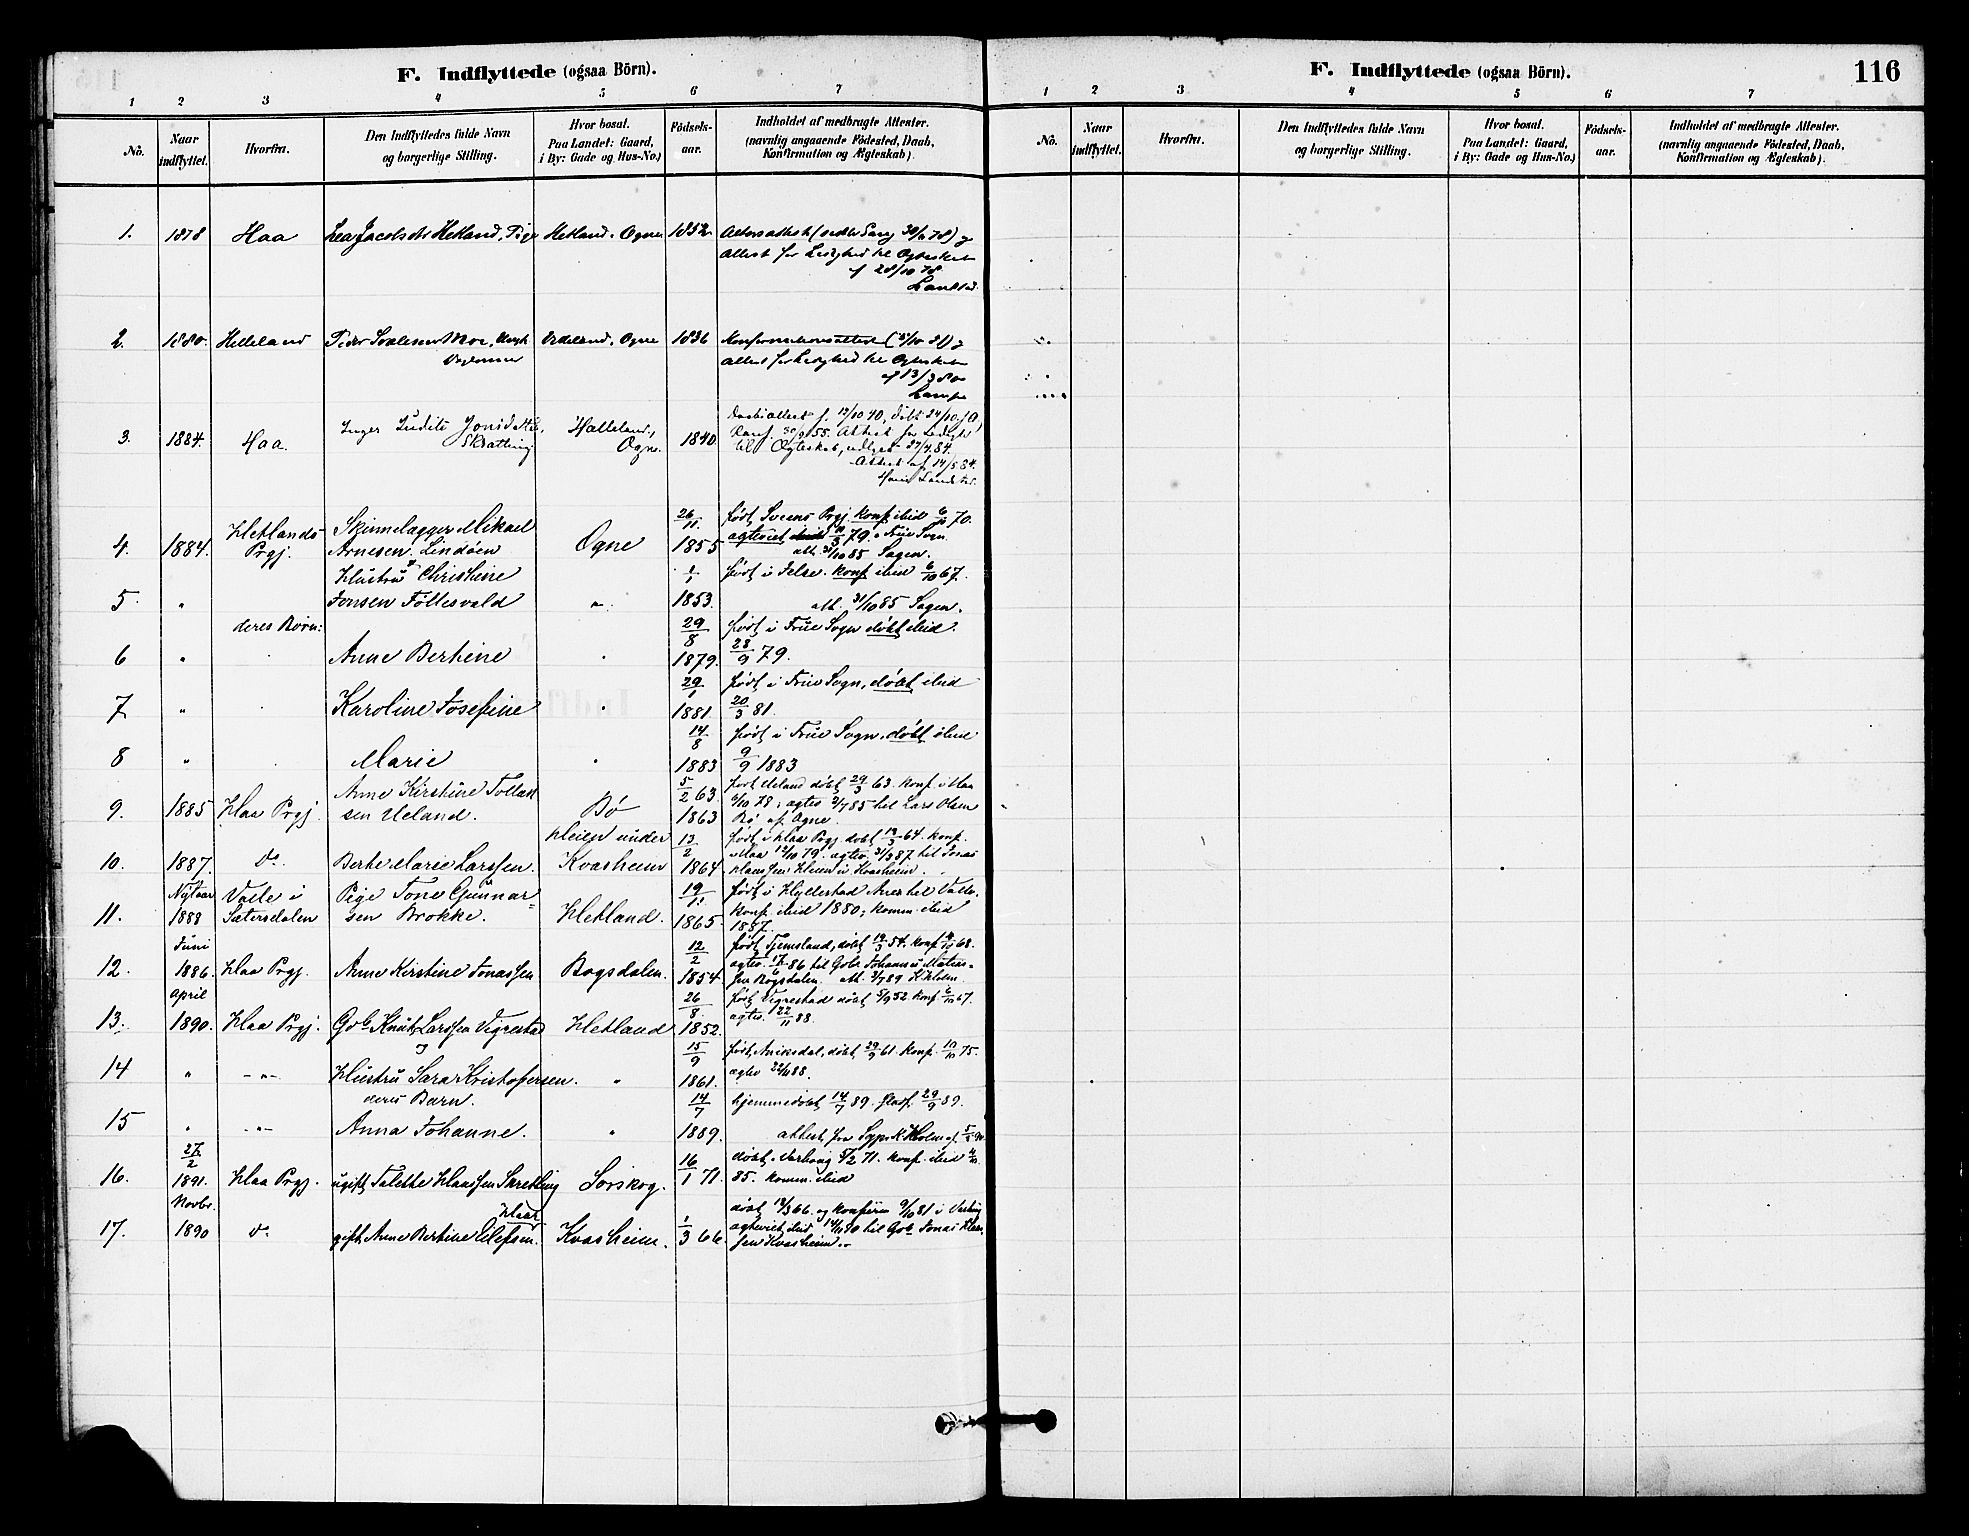 F. Indflyttede (ogsaa Börn).
1 2 3 4 5 6 7
No. Naar indflyttet. Hvorfra. Den Indflyttedes fulde Navn og borgerlige Stilling. Hvor bosat. Paa Landet: Gaard, i By: Gade og Hus-No.) Födsels-aar. Indholdet af medbragte Attester. (navnlig angaaende Födested, Daab, Konfirmation og Ægteskab).
1. 1878 Haa Lea Jacobsdtr Hetland, Pige Hetland, Ogne 1852
Attest for Ledighed til Ægteskab
af 28/10 78
2. 1880. Helleland Peder Moe, Ogne 1836
attest for Ledighed til Ægteskab
af 13/3 80
3. 1884. Haa. Inger Judite Jonsd. Ogne. 1840
Attest for Ledighed
til Ægteskab, udsted 27/4 84.
Attest af 14/5 84.
4. 1884. Hetlands Prgj. Skinnelægger Mikael Arnesen Lindöen Ogne 26/11 1855 født Sveens Prgj. konf ibid 6/11 70.
ægteviet 79. i Frue Sogn
att. 31/10 85 Sagen.
5. " Hustru Christine Jonsen Föllesvald " 1/1 1853. født i Jelse. konf ibid 6/10 67.
att. 31/10 85 Sagen.
deres Børn:
6 " Anne Bertine " 29/8 1879. født i Frue Sogn døbt ibid.
28/9 79.
7 " Karoline Josefine " 29/1 1881. født i Frue Sogn, døbt ibid
20/3 81.
8 " Marie " 14/8 1883 født i Frue Sogn, døbt ibid
9/9 1883
9. 1885 Haa Prgj. Anne Kirstine Tollaksen Ueland. Bø 5/2 63. 1863 født Ueland døbt 29/3 63. konf. i Haa
6/10 78, ægtev. 2/7 85 til Lars Olsen
Bø af Ogne.
10. 1887. do. Berte Marie Larssen. Heien under Kvasheim 13/2 1864 født i Haa Prgj døbt 13/3 64. konf.
i Haa 12/10 79. ægtev. 31/3 87. til Jonas
Klaussen Heien i Kvasheim.
11. Nytaar 1888 Valle i Sætersdalen Pige Tone Gunnarsen Brokke. Hetland. 19/11 1865 født i Hyllestad Anex til Valle.
konf. ibid 1880; komm. ibid
1887.
12. Juni 1886. Haa Prgj. Anne Kirstine Jonassen Bogsdalen. 12/2 1854 født Tjemsland, døbt 19/3 54. konf 68.
ægtev. 17/6 86 til Gbr. Johannes
Bogsdalen. att. 2/7 89 K. Holm
13. April 1890. Haa Prgj. Gbr Knut Larssen Vigrestad Hetland 26/8 1852. født Vigrestad døbt 5/9 52. konf 6/10 67.
og ægtev. 22/11 88.
14 " " Hustru Sara Kristofersen. " 15/9 1861. født Aniksdal, døbt 29/9 61. konf. 10/10 75.
ægtev 22/11 88.
deres Barn.
15 " " Anna Johanne. " 14/7 1889. hjemmedøbt 14/7 89. stadf. 29/9 89.
attest fra Sgpr. K. Holm af
16. 27/2 1891. Haa Prgj. ugift Talette Klaassen Skretting Sørskog. 16/1 71. døbt Varhaug 5/2 71. konf. ibid
85. komm. ibid
17. Novbr. 1890 do gift Anne Bertine Olefsen. Kvasheim. 1/3 66. døbt 12/3 66. og konfirm 9/10 81 i Varhaug
ægteviet ibid 14/11 90 til Gbr Jonas
Kvasheim.
F. Indflyttede (ogsaa Börn).
116
1 2 3 4 5 6 7
No. Naar indflyttet. Hvorfra. Den Indflyttedes fulde Navn og borgerlige Stilling. Hvor bosat. Paa Landet: Gaard, i By: Gade og Hus-No.) Födsels-aar. Indholdet af medbragte Attester. (navnlig angaaende Födested, Daab, Konfirmation og Ægteskab).